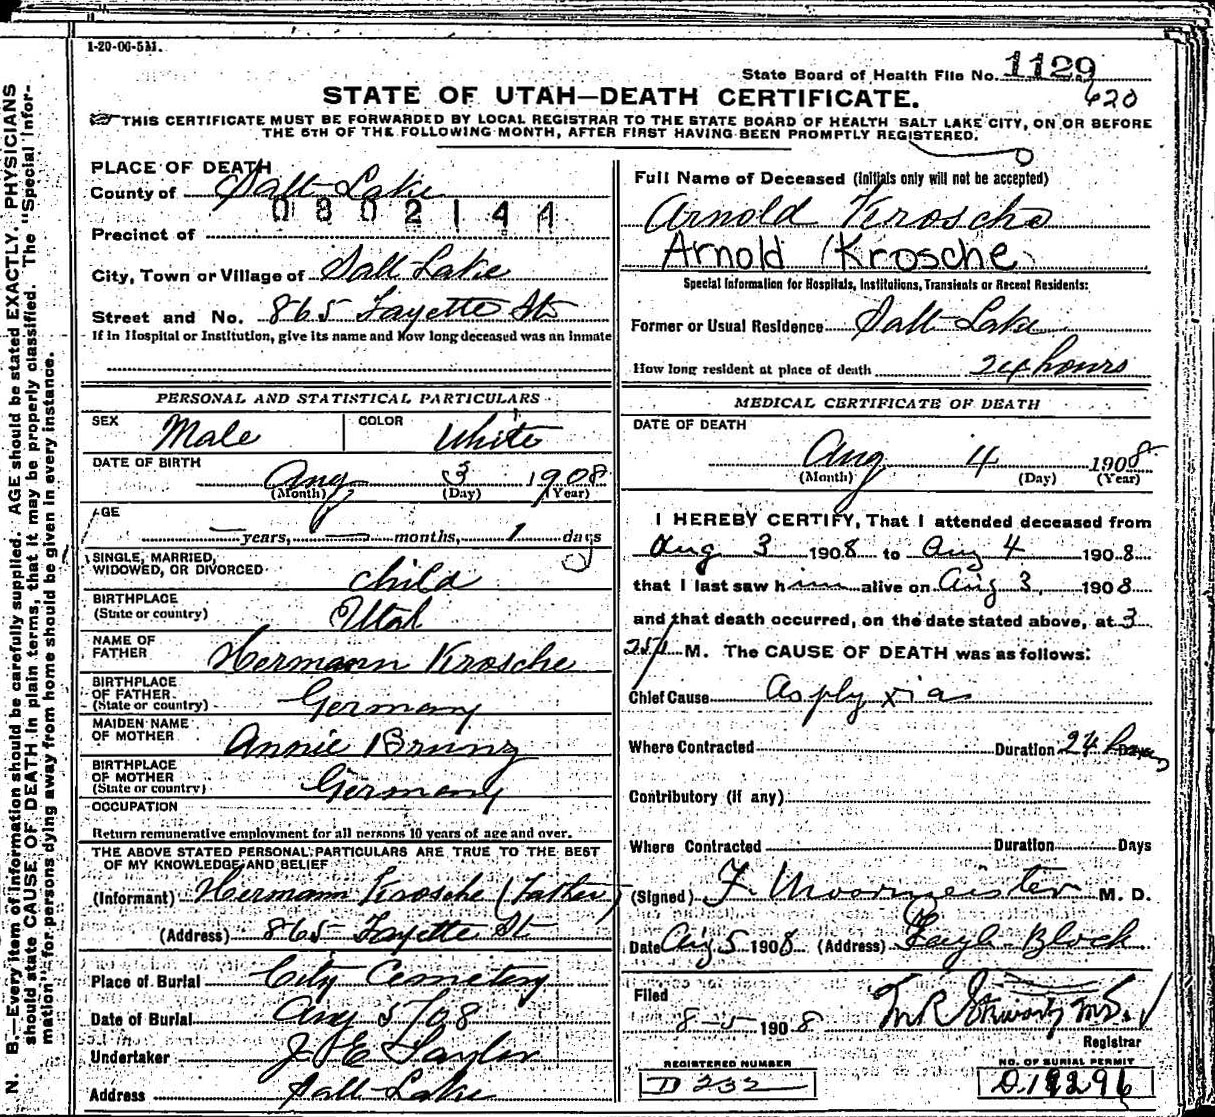 1-20-06-5M.
State Board of Health File No. 1129
620
STATE OF UTAH—DEATH CERTIFICATE.
THIS CERTIFICATE MUST BE FORWARDED BY LOCAL REGISTRAR TO THE STATE BOARD OF HEALTH SALT LAKE CITY, ON OR BEFORE
THE 5TH OF THE FOLLOWING MONTH, AFTER FIRST HAVING BEEN PROMPTLY REGISTERED.
PLACE OF DEATH
County of Salt Lake
0802144
Precinct of
City, Town or Village of Salt Lake
Street and No. 865 Fayette St
If in Hospital or Institution, give its name and How long deceased was an inmate
Full Name of Deceased (initials only will not be accepted)
Arnold Krosche
Arnold Krosche
Special Information for Hospitals, Institutions, Transients or Recent Residents:
Former or Usual Residence Salt Lake
How long resident at place of death 24 hours
PERSONAL AND STATISTICAL PARTICULARS
SEX Male COLOR White
DATE OF BIRTH
Aug 3 1908
(Month) (Day) (Year)
AGE
— years, — months, 1 days
SINGLE, MARRIED,
WIDOWED, OR DIVORCED child
BIRTHPLACE
(State or country) Utah
NAME OF
FATHER Hermann Krosche
BIRTHPLACE
OF FATHER
(State or country) Germany
MAIDEN NAME
OF MOTHER Annie Brunz
BIRTHPLACE
OF MOTHER
(State or country) Germany
OCCUPATION
Return remunerative employment for all persons 10 years of age and over.
THE ABOVE STATED PERSONAL PARTICULARS ARE TRUE TO THE BEST
OF MY KNOWLEDGE AND BELIEF
(Informant) Hermann Krosche (Father)
(Address) 865 Fayette St
Place of Burial City Cemetery
Date of Burial Aug 5/08
Undertaker J E Taylor
Address Salt Lake
MEDICAL CERTIFICATE OF DEATH
DATE OF DEATH
Aug 4 1908
(Month) (Day) (Year)
I HEREBY CERTIFY, That I attended deceased from
Aug 3 1908 to Aug 4 1908
that I last saw him alive on Aug 3, 1908
and that death occurred, on the date stated above, at 3
M. The CAUSE OF DEATH was as follows:
Chief Cause Asplyxia
Where Contracted Duration 24 hours
Contributory (if any)
Where Contracted Duration Days
(Signed) F. Moormeister M. D.
Date Aug 5 1908 (Address) Block
Filed
8-5 1908
Registrar
REGISTERED NUMBER
D 232
NO. OF BURIAL PERMIT
N. B.—Every item of information should be carefully supplied. AGE should be stated EXACTLY. PHYSICIANS
should state CAUSE OF DEATH in plain terms, that it may be properly classified. The "Special Infor-
mation" for persons dying away from home should be given in every instance.